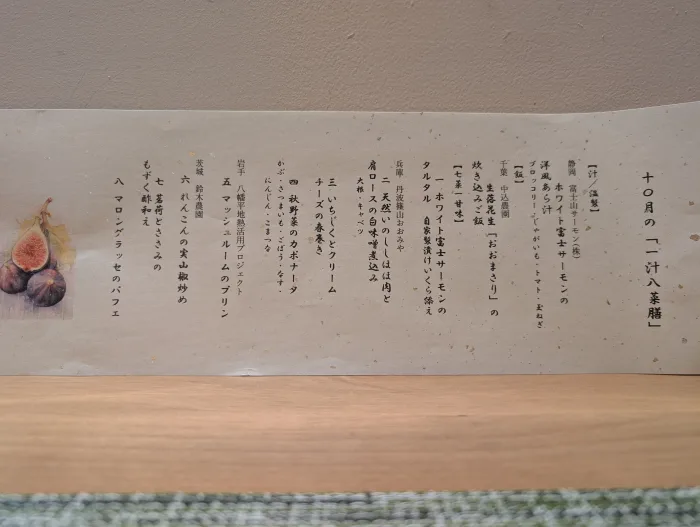 十〇月の「一汁八菜膳」
【汁/温製】
静岡 富士山サーモン(株)
ホワイト富士サーモンの
洋風あら汁
ブロッコリー・じゃがいも・トマト・玉ねぎ
【飯】
千葉 中込農園
生落花生「おおまさり」の
炊き込みご飯
【七菜一甘味】
一 ホワイト富士サーモンの
タルタル 自家製漬けいくら添え
兵庫 丹波篠山おおみや
二 天然いのししばら肉と
肩ロースの白味噌煮込み
大根・キャベツ
三 いちじくとクリーム
チーズの春巻き
四 秋野菜のカポナータ
かぶ・さつまいも・ごぼう・なす・
にんじん・こまつな
岩手 八幡平地熱活用プロジェクト
五 マッシュルームのプリン
茨城 鈴木農園
六 れんこんの実山椒炒め
七 茗荷とささみの
もずく酢和え
八 マロングラッセのパフェ